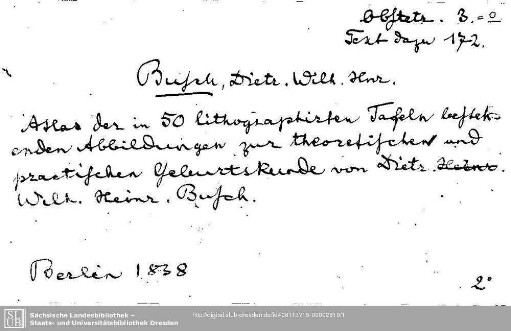 Obstetr. 3.=0
Text dazu 172.
Busch, Dietr. Wilh. Hnr.
Atlas der in 50 lithographirten Tafeln besteh-
enden Abbildungen zur theoretischen und
practischen Geburtskunde von Dietr. Heinr.
Wilh. Heinr. Busch.
Berlin 1838
2°
SLUB
Sächsische Landesbibliothek –
Staats- und Universitätsbibliothek Dresden